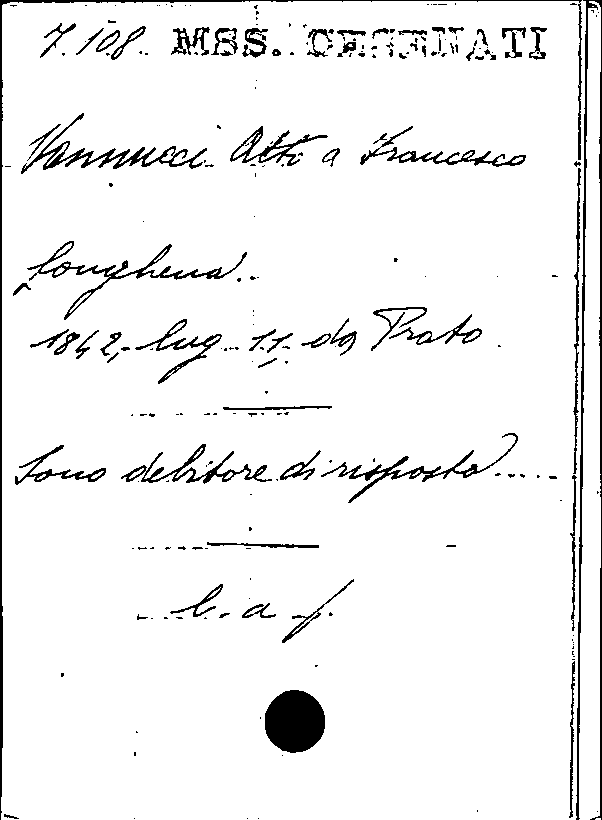 7.108. MSS. CESENATI
Vannucci Atto a Francesco
Longhena.
1842, lug. 11, da Prato.
Sono debitore di risposta.....
l. a f.